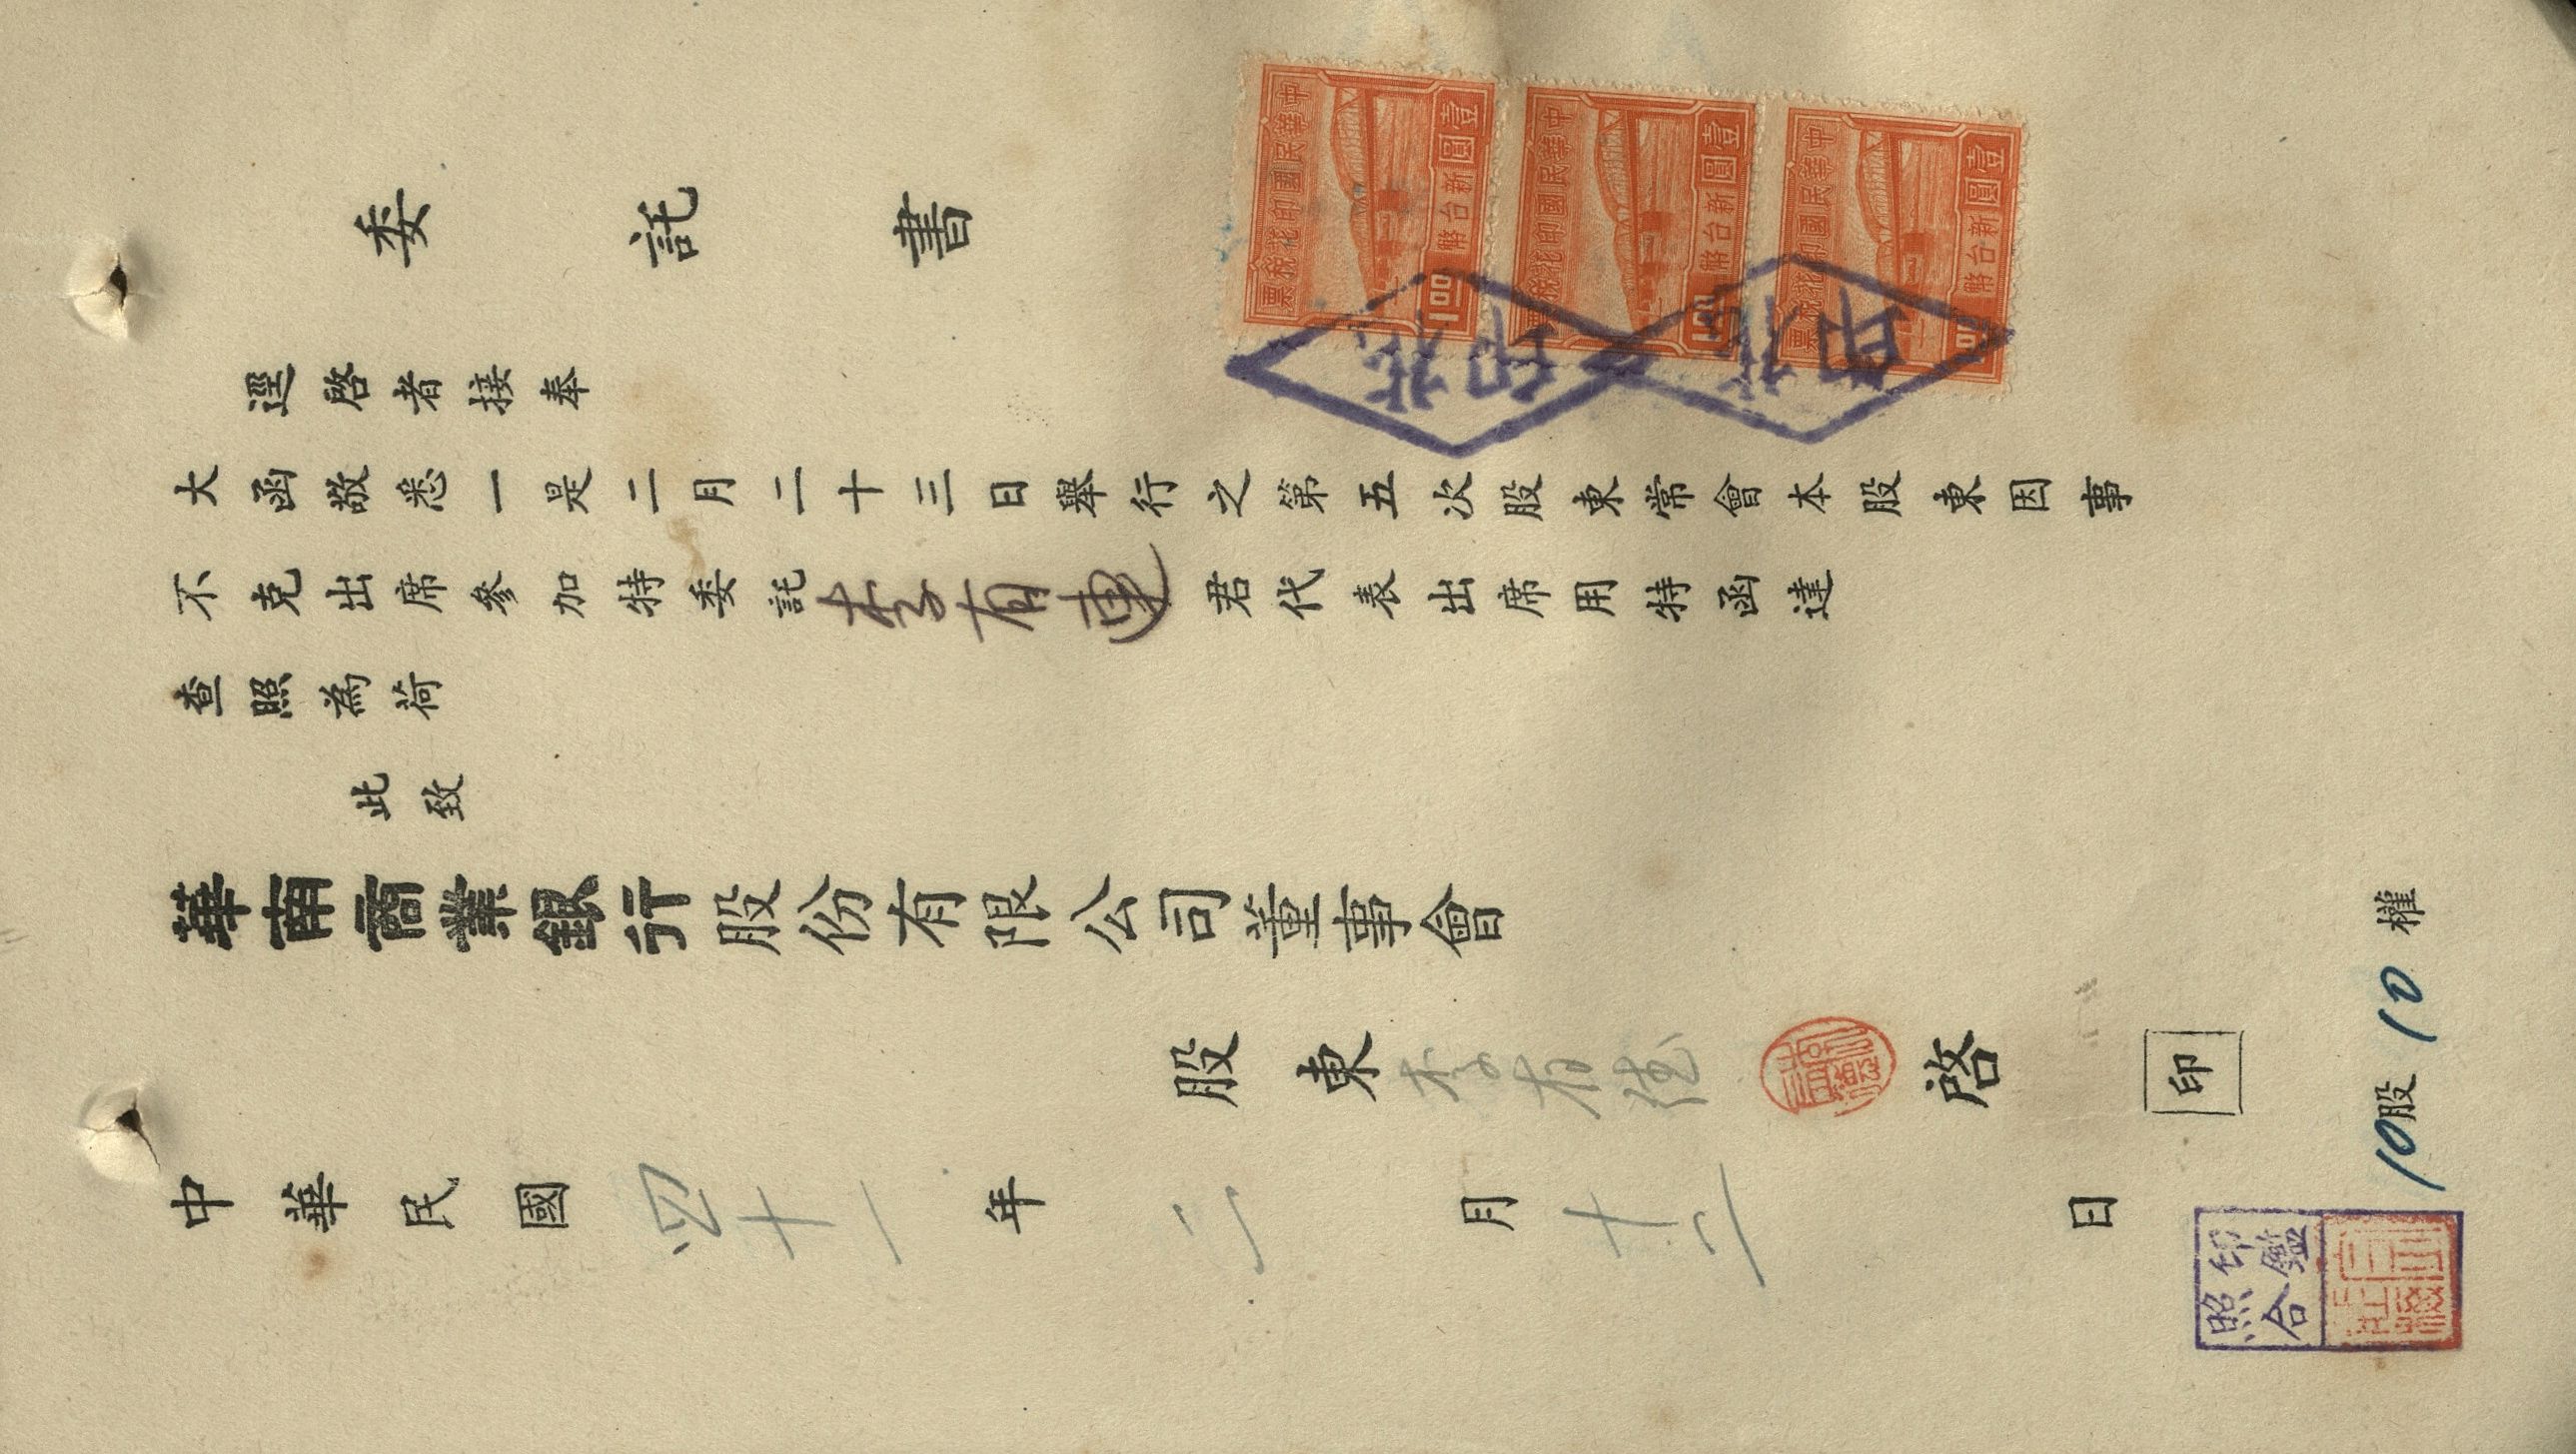 委託書
逕啓者接奉
大函敬悉一是二月二十三日舉行之第五次股東常會本股東因事
不克出席參加特委託李有連君代表出席用特函達
查照為荷
此致
華南商業銀行股份有限公司董事會
股東李有德啓
印
中華民國四十一年二月十二日
10股10權
印鑑
照合
中華民國印花稅票
壹圓新台幣
1.00
中華民國印花稅票
壹圓新台幣
1.00
中華民國印花稅票
壹圓新台幣
1.00